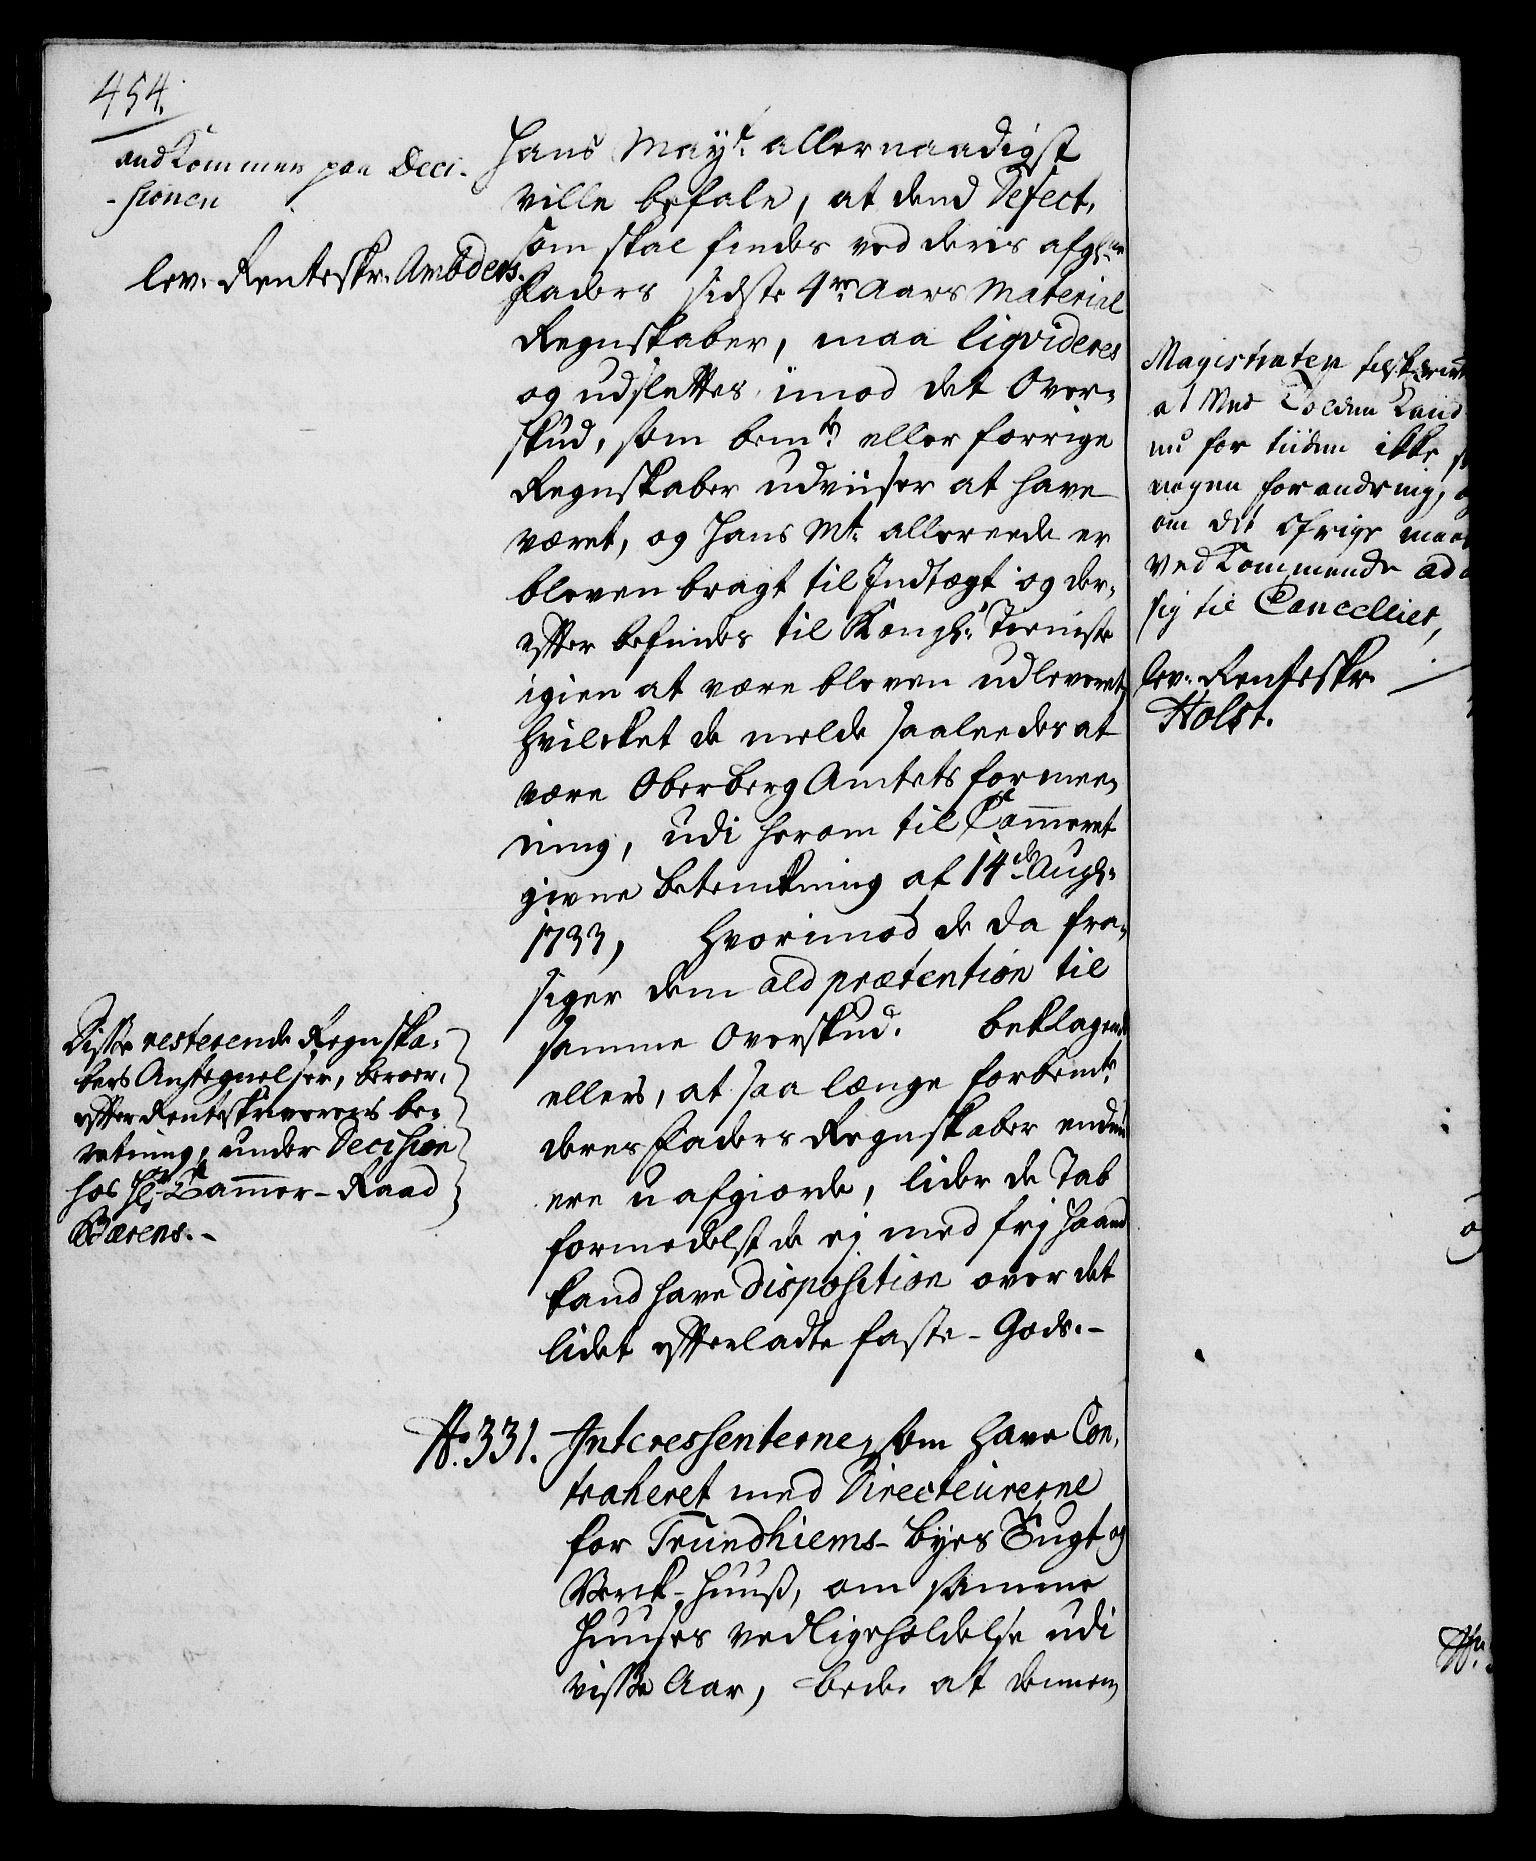 454.
andkommer paa Deci-
-sionen
lev. Renteskr: Ambders.
Hans Mayt. allernaadigst
ville befale, at dend Defect,
som skal findes ved deris afgl.
Faders sidste 4re Aars Material
Regnskaber, maa liqvideres
og udslettes imod det Over-
skud, som bemte eller forrige
Regnskaber udviiser at have
været, og Hans Mt. allereede er
bleven bragt til Indtægt og der-
efter befindes til Kongl. Tieniste
igien at være bleven udleveret,
hvilcket de melde saaleedes at
være OberBerg Amtets formee-
ning, udi herom til Cammeret
givne Betænkning af 14de Augl.
1733, hvorimod de da fra-
siger dem ald prætention til
samme Overskud. beklagende
ellers, at saa længe forbemte
deres Faders Regnskaber endnu
ere uafgiorde, lider de Tab
formedelst de ej med frj Haand
kand have Disposition over det
lidet efterladte faste-Gods.-
Disse resterende Regnska-
bers Antegnelser, beroer,
efter Renteskriverens be-
retning, under Decision
hos Hr. Cammer-Raad
Bærens.-
No. 331. Interessenterne, som have Con-
traheret med Directeurerne
for Trundhiems-Byes Tugt og
Værck-Huuß, om samme
Huuses vedligeholdelse udi
visse Aar, bede at dennem
Magistraten tilskrives
at Med Tolden Kand
nu for tiiden ikke
nogen forandring,
om det øfrige maa
vedkommende
sig til Cancelliet,
lev. Renteskr.
Holst.